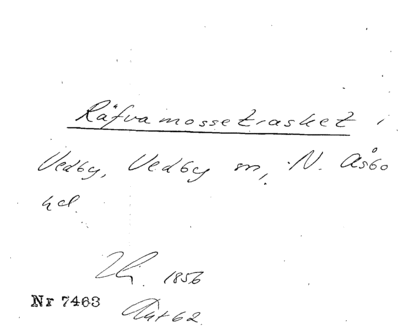 Räfvamossetrasket i
Vedby, Vedby sn, N. Åsbo
hd.
1856
Nr 7463